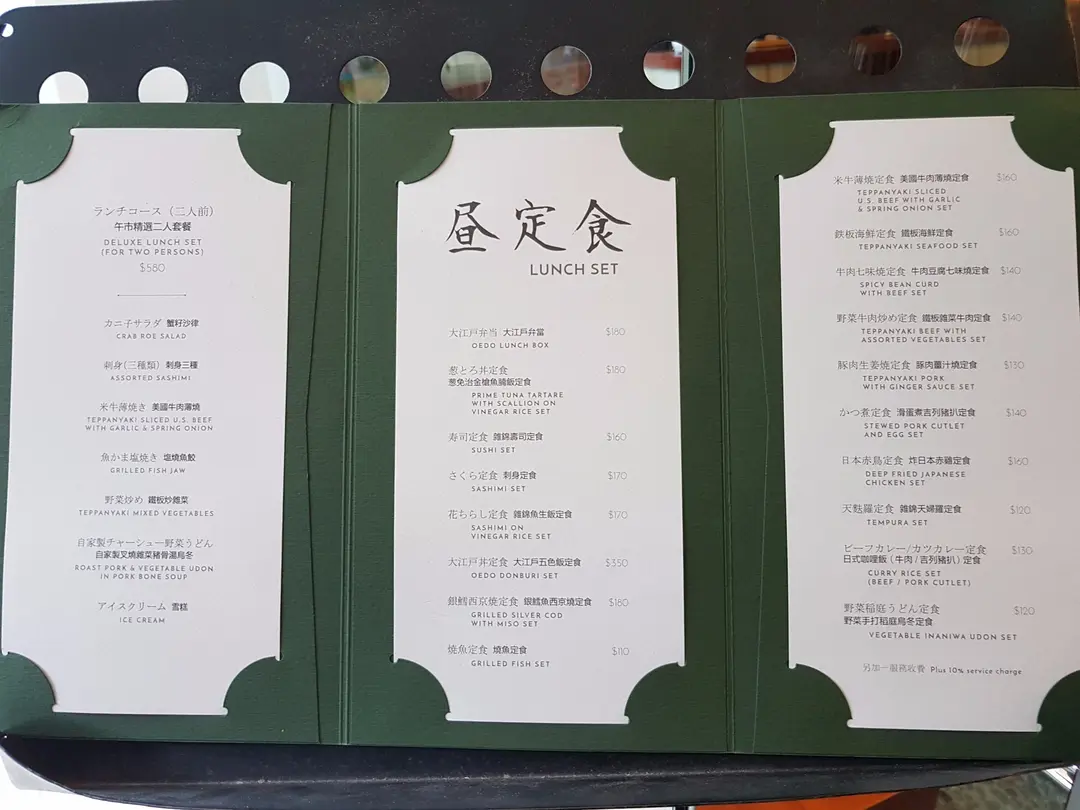 ランチコース（二人前）
午市精選二人套餐
DELUXE LUNCH SET
(FOR TWO PERSONS)
$580
カニ子サラダ 蟹籽沙律
CRAB ROE SALAD
刺身（三種類） 刺身三種
ASSORTED SASHIMI
米牛薄焼き 美國牛肉薄燒
TEPPANYAKI SLICED U.S. BEEF
WITH GARLIC & SPRING ONION
魚かま塩焼き 塩燒魚鮫
GRILLED FISH JAW
野菜炒め 鐵板炒雜菜
TEPPANYAKI MIXED VEGETABLES
自家製チャーシュー野菜うどん
自家製叉燒雜菜豬骨湯烏冬
ROAST PORK & VEGETABLE UDON
IN PORK BONE SOUP
アイスクリーム 雪糕
ICE CREAM
昼定食
LUNCH SET
大江戸弁当 大江戶弁當 $180
OEDO LUNCH BOX
葱とろ丼定食 $180
葱免治金槍魚腩飯定食
PRIME TUNA TARTARE
WITH SCALLION ON
VINEGAR RICE SET
寿司定食 雜錦壽司定食 $160
SUSHI SET
さくら定食 刺身定食 $170
SASHIMI SET
花ちらし定食 雜錦魚生飯定食 $170
SASHIMI ON
VINEGAR RICE SET
大江戸丼定食 大江戶五色飯定食 $350
OEDO DONBURI SET
銀鱈西京焼定食 銀鱈魚西京燒定食 $180
GRILLED SILVER COD
WITH MISO SET
焼魚定食 燒魚定食 $110
GRILLED FISH SET
米牛薄焼定食 美國牛肉薄燒定食 $160
TEPPANYAKI SLICED
U.S. BEEF WITH GARLIC
& SPRING ONION SET
鉄板海鮮定食 鐵板海鮮定食 $160
TEPPANYAKI SEAFOOD SET
牛肉七味焼定食 牛肉豆腐七味燒定食 $140
SPICY BEAN CURD
WITH BEEF SET
野菜牛肉炒め定食 鐵板雜菜牛肉定食 $140
TEPPANYAKI BEEF WITH
ASSORTED VEGETABLES SET
豚肉生姜焼定食 豚肉薑汁燒定食 $130
TEPPANYAKI PORK
WITH GINGER SAUCE SET
かつ煮定食 滑蛋煮吉列豬扒定食 $140
STEWED PORK CUTLET
AND EGG SET
日本赤鳥定食 炸日本赤鷄定食 $160
DEEP FRIED JAPANESE
CHICKEN SET
天麩羅定食 雜錦天婦羅定食 $120
TEMPURA SET
ビーフカレー/カツカレー定食 $130
日式咖喱飯（牛肉/吉列豬扒）定食
CURRY RICE SET
(BEEF / PORK CUTLET)
野菜稲庭うどん定食 $120
野菜手打稻庭烏冬定食
VEGETABLE INANIWA UDON SET
另加一服務收費 Plus 10% service charge